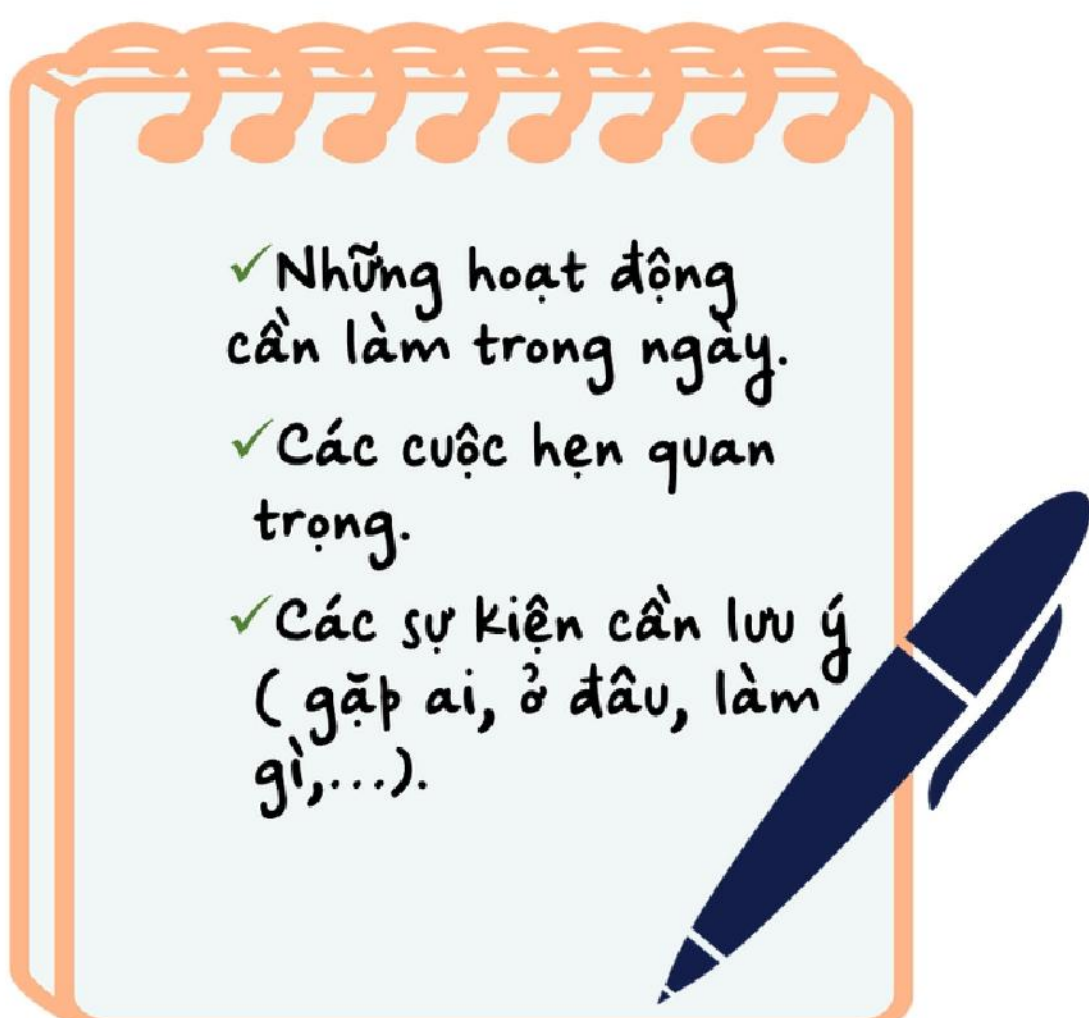 ✓Những hoạt động
cần làm trong ngày.
✓Các cuộc hẹn quan
trọng.
✓Các sự kiện cần lưu ý
( gặp ai, ở đâu, làm
gì,...).